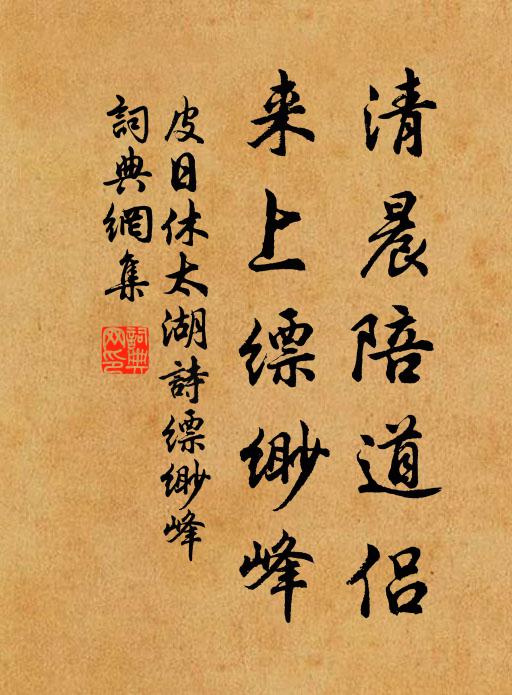 清晨陪道侣
来上缥缈峰
皮日休太湖詩缥缈峰
詞典網集
詞典網印